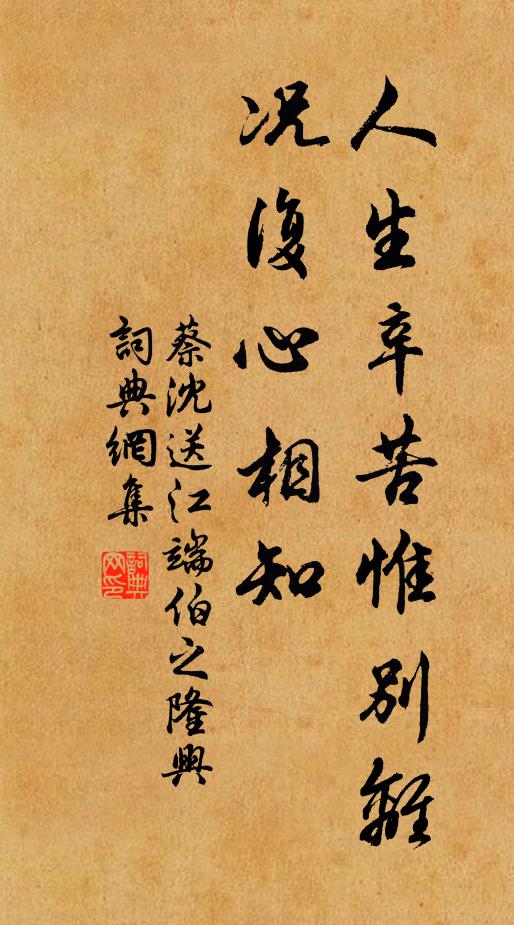 人生辛苦惟別離
况復心相知
蔡沈送江端伯之隆興
詞典網集
詞典网印